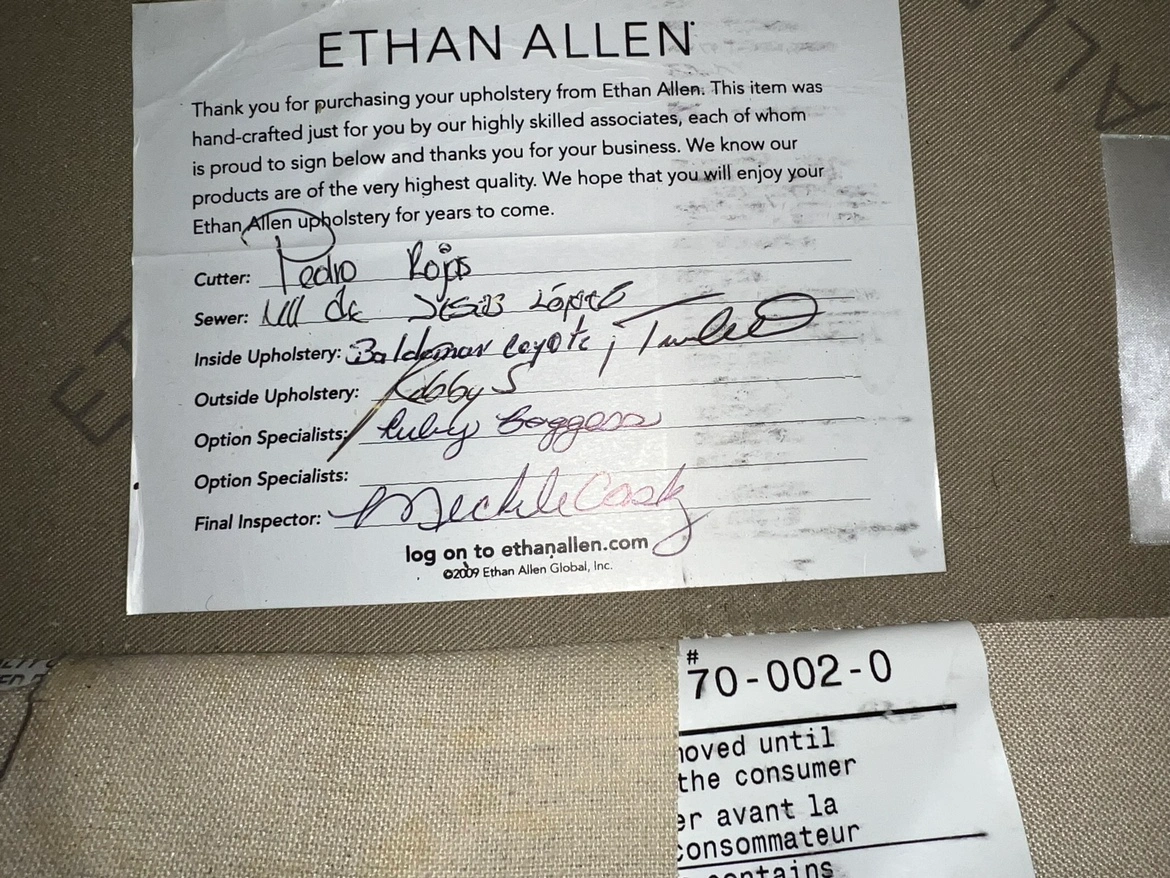 ETHAN ALLEN
Thank you for purchasing your upholstery from Ethan Allen. This item was
hand-crafted just for you by our highly skilled associates, each of whom
is proud to sign below and thanks you for your business. We know our
products are of the very highest quality. We hope that you will enjoy your
Ethan Allen upholstery for years to come.
Cutter: Pedro
Sewer: de
Inside Upholstery: Baldemar Coyote;
Outside Upholstery: Kobby S
Option Specialists: Ruby Boggess
Option Specialists:
Final Inspector:
log on to ethanallen.com
©2009 Ethan Allen Global, Inc.
#
70-002-0
oved until
the consumer
er avant la
consommateur
contains